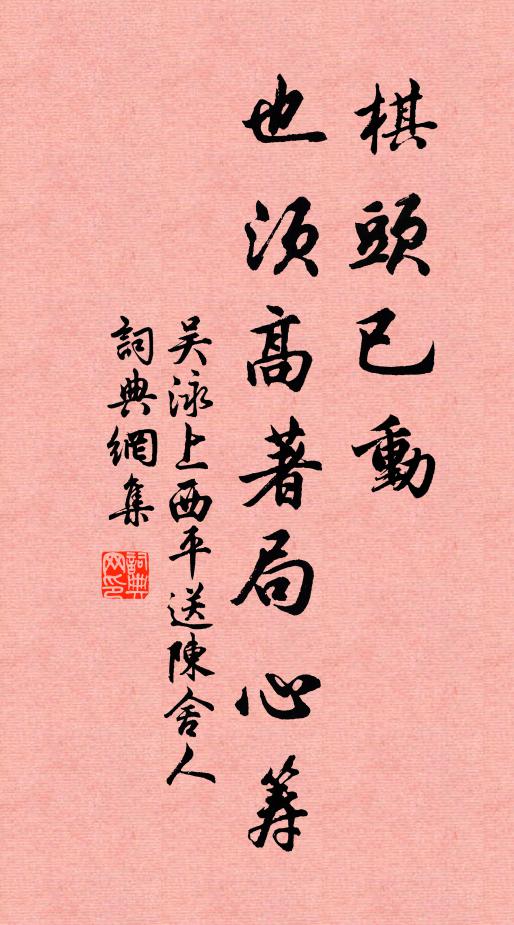 棋頭已動
也須高著局心筭
吴泳上西平送陳舍人
詞典網集
詞典網印